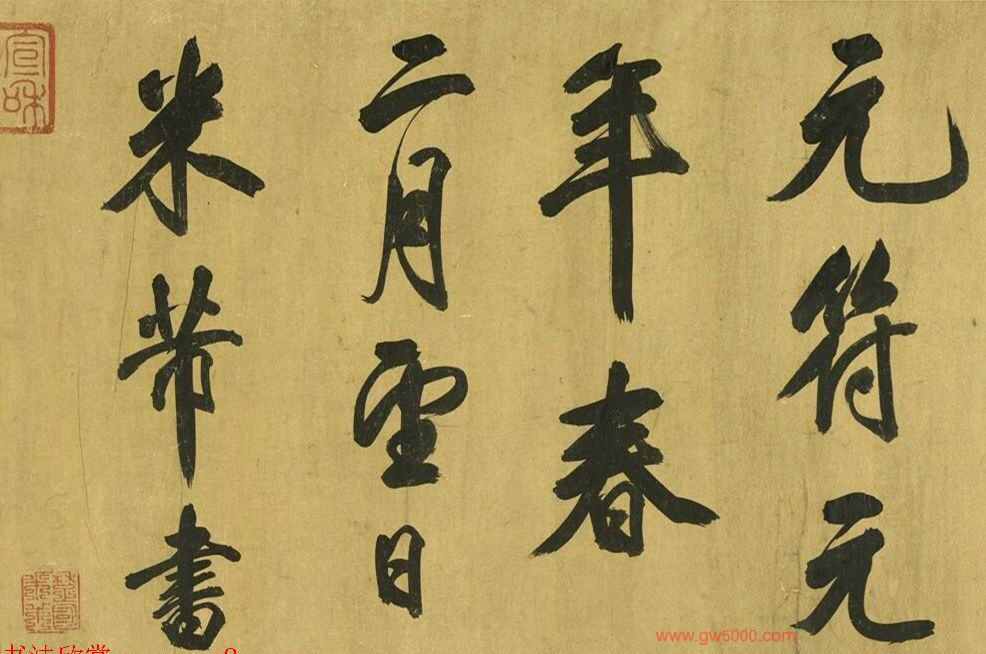 元符元
年春
二月望日
米芾書
宣和
www.gw5000.com
书法欣赏